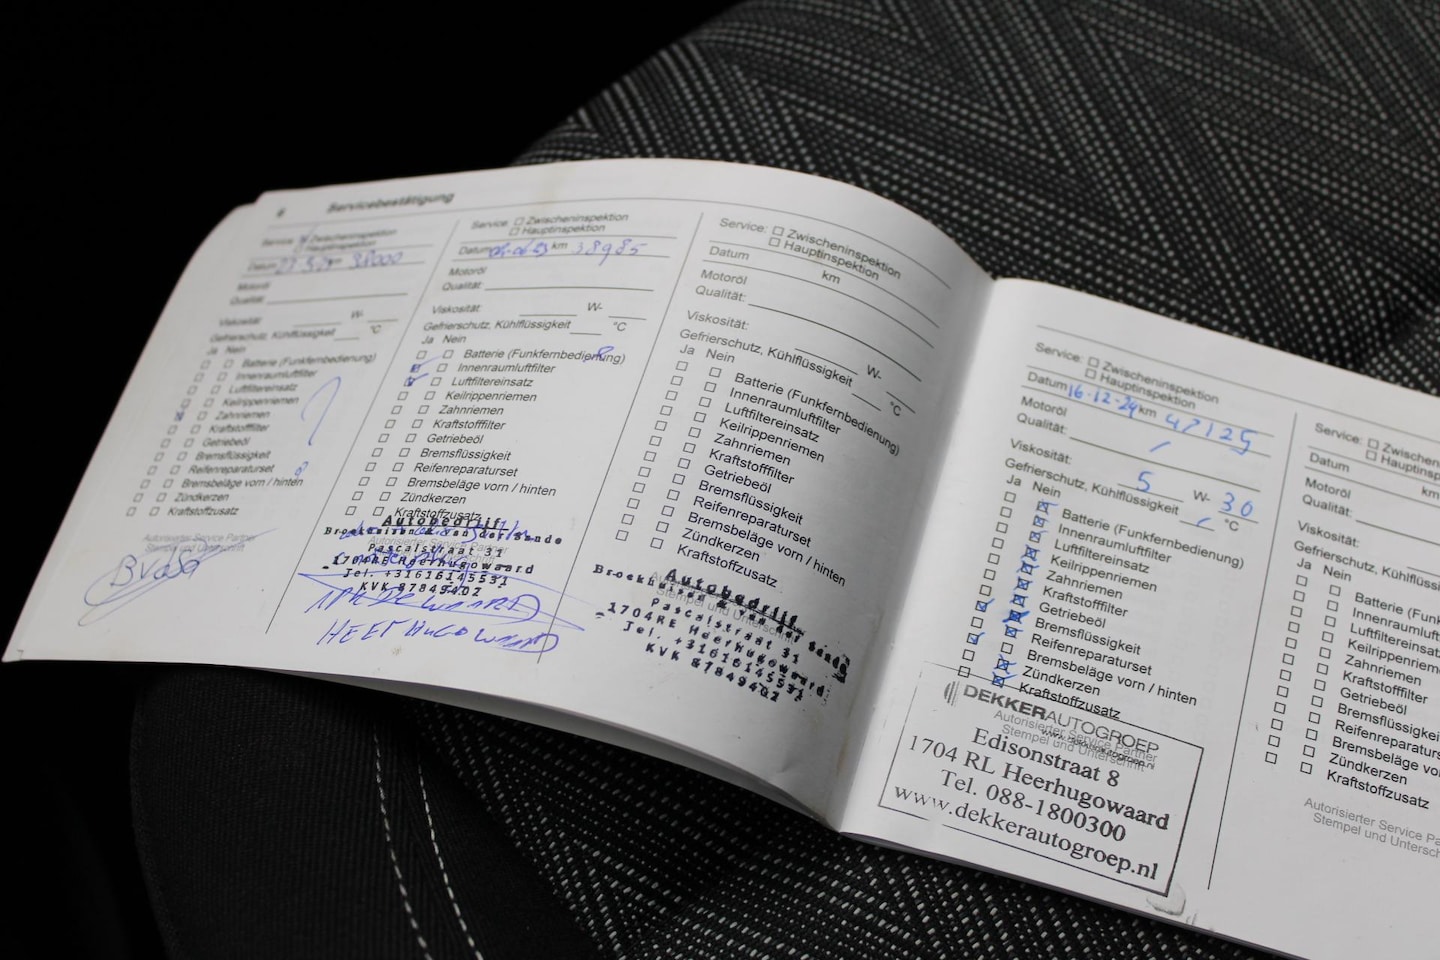 8 Servicebestätigung
Service: Zwischeninspektion
Hauptinspektion
Datum km 38000
Motoröl
Qualität:
Viskosität: W-
Gefrierschutz, Kühlflüssigkeit °C
Ja Nein
Batterie (Funkfernbedienung)
Innenraumluftfilter
Luftfiltereinsatz
Keilrippenriemen
Zahnriemen
Kraftstofffilter
Getriebeöl
Bremsflüssigkeit
Reifenreparaturset
Bremsbeläge vorn / hinten
Zündkerzen
Kraftstoffzusatz
Autorisierter Service Partner
Stempel und Unterschrift
Service: Zwischeninspektion
Hauptinspektion
Datum km 38985
Motoröl
Qualität:
Viskosität: W-
Gefrierschutz, Kühlflüssigkeit °C
Ja Nein
Batterie (Funkfernbedienung)
Innenraumluftfilter
Luftfiltereinsatz
Keilrippenriemen
Zahnriemen
Kraftstofffilter
Getriebeöl
Bremsflüssigkeit
Reifenreparaturset
Bremsbeläge vorn / hinten
Zündkerzen
Kraftstoffzusatz
Autobedrijf
Broekhuizen & van der Sande
Pascalstraat 31
1704RE Heerhugowaard
Tel. +31616145591
KVK 87849402
APK DE WAARD
HEERHUGOWAARD
Service: Zwischeninspektion
Hauptinspektion
Datum km
Motoröl
Qualität:
Viskosität: W-
Gefrierschutz, Kühlflüssigkeit °C
Ja Nein
Batterie (Funkfernbedienung)
Innenraumluftfilter
Luftfiltereinsatz
Keilrippenriemen
Zahnriemen
Kraftstofffilter
Getriebeöl
Bremsflüssigkeit
Reifenreparaturset
Bremsbeläge vorn / hinten
Zündkerzen
Kraftstoffzusatz
Autobedrijf
Broekhuizen & van der Sande
Pascalstraat 31
1704RE Heerhugowaard
Tel. +31616145591
KVK 87849402
Service: Zwischeninspektion
Hauptinspektion
Datum 16-12-24 km 47125
Motoröl
Qualität:
Viskosität: 5 W- 30
Gefrierschutz, Kühlflüssigkeit °C
Ja Nein
Batterie (Funkfernbedienung)
Innenraumluftfilter
Luftfiltereinsatz
Keilrippenriemen
Zahnriemen
Kraftstofffilter
Getriebeöl
Bremsflüssigkeit
Reifenreparaturset
Bremsbeläge vorn / hinten
Zündkerzen
Kraftstoffzusatz
DEKKERAUTOGROEP
Autorisierter Service Partner
Stempel und Unterschrift
Edisonstraat 8
1704 RL Heerhugowaard
Tel. 088-1800300
www.dekkerautogroep.nl
Service: Zwischeninspektion
Hauptinspektion
Datum km
Motoröl
Qualität:
Viskosität:
Gefrierschutz, Kühlflüssig
Ja Nein
Batterie (Funkf
Innenraumluft
Luftfiltereinsat
Keilrippenriem
Zahnriemen
Kraftstofffilter
Getriebeöl
Bremsflüssigke
Reifenreparatur
Bremsbeläge vo
Zündkerzen
Kraftstoffzusatz
Autorisierter Service Pa
Stempel und Unterschr